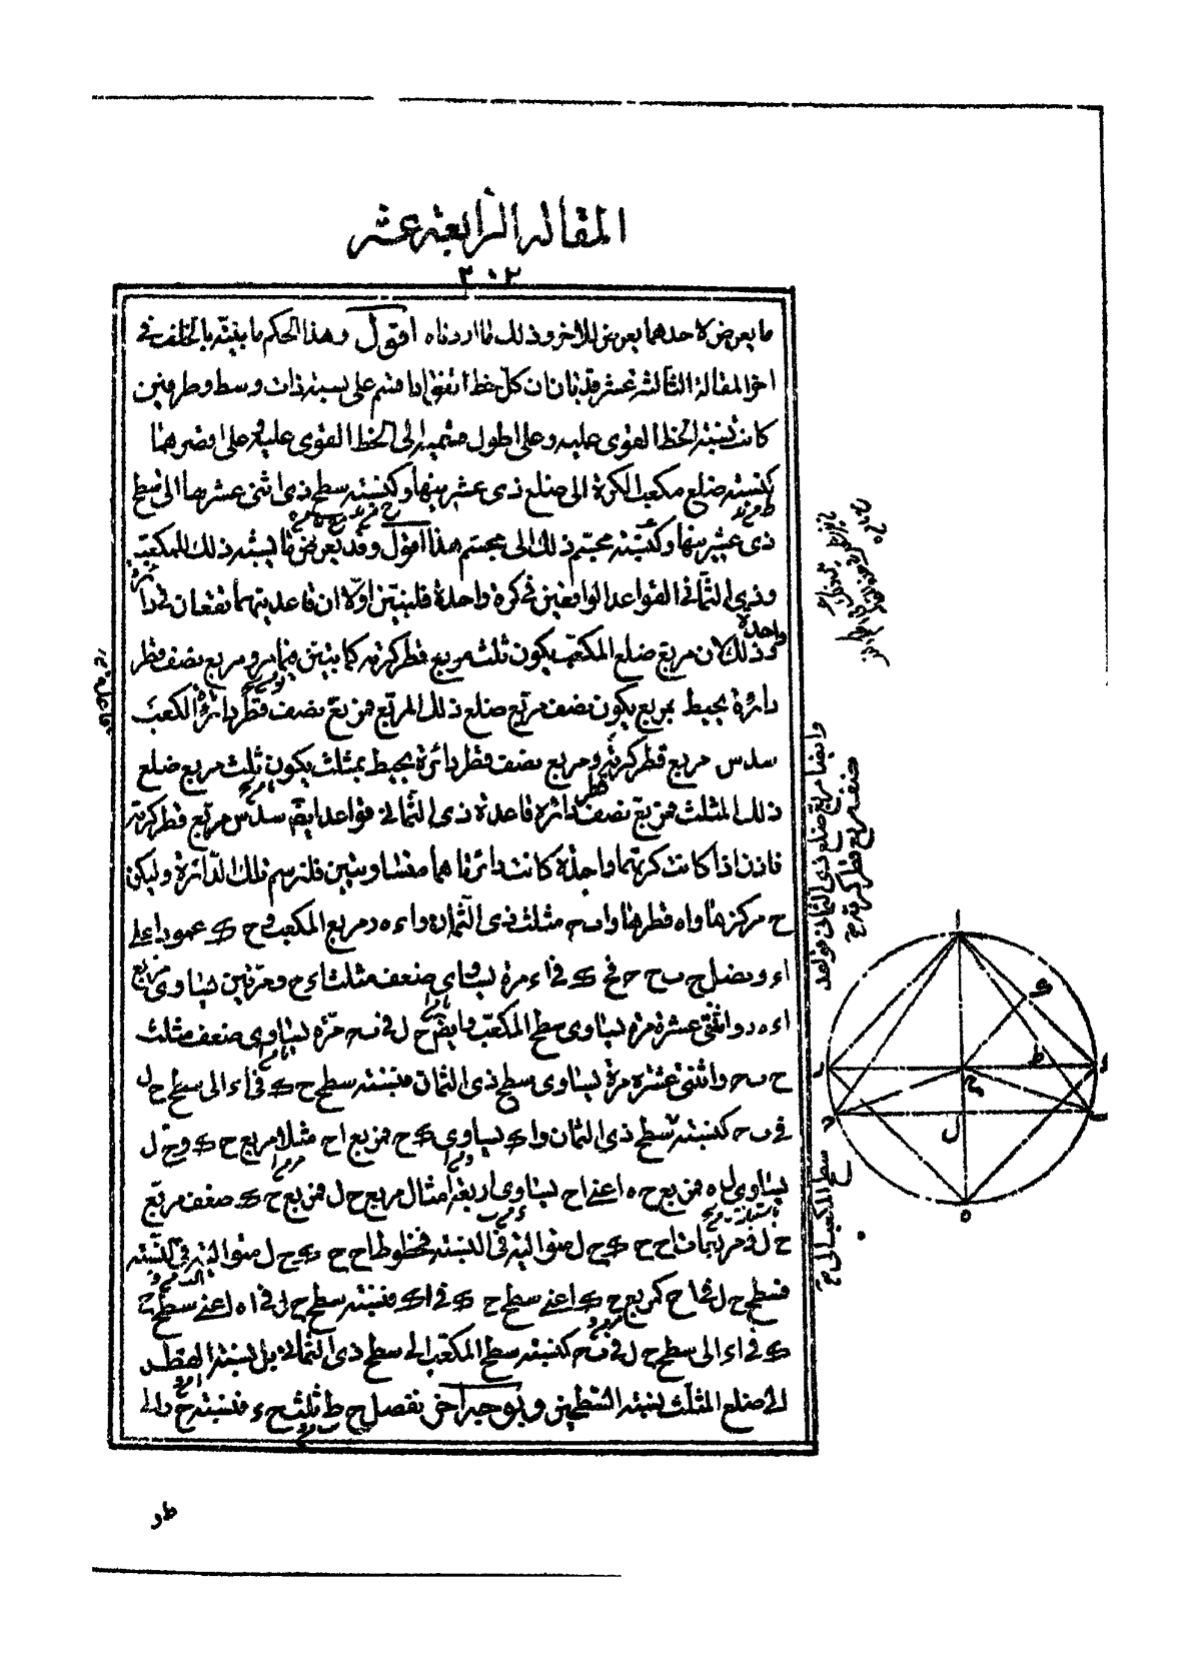 المقالة الرابعة عشر
٢٠٢
ما يعرض لاحدهما يعرض للاخر وذلك ما اردناه اقول وهذا الحكم ما ينبته بالخلف في
اخر المقالة الثالثة عشر قد بان ان كل خط اتفق اذا قسم على نسبة ذات وسط وطرفين
كانت نسبة الخط القوى عليه وعلى اطول قسميه الى الخط القوى عليه وعلى اقصرهما
كنسبة ضلع مكعب الكرة الى ضلع ذى عشرينها وكنسبة سطح ذى اثنى عشرها الى سطح
ذى عشرينها وكنسبة مجسم ذلك الى مجسم هذا اقول وقد يعرض ما يشبه ذلك للمكعب
وذى الثمانى القواعد الواقعين في كرة واحدة فلنبين اولا ان قاعدتيهما تقعان في دائرة
واحدة
وذلك لان مربع ضلع المكعب يكون ثلث مربع قطر كرته كما تبين فيما مر ومربع نصف قطر
دائرة يحيط بمربع يكون نصف مربع ضلع ذلك المربع فمربع نصف قطر دائرة المكعب
سدس مربع قطر كرته ومربع نصف قطر دائرة يحيط بمثلث يكون ثلث مربع ضلع
ذلك المثلث فمربع نصف قطر دائرة قاعدة ذى الثمانى قواعد ايضا سدس مربع قطر كرته
فاذن اذا كانت كرتهما واحدة كانت دائرتاهما متساويتين فلنرسم تلك الدائرة وليكن
ح مركزها و ا ه قطرها و ا ب ح مثلث ذى الثمان و ا ء ه د مربع المكعب و ح ك عمودا على
ا ء ونصل ح ب ح ح فح ك في ا ء مرة يساوى ضعف مثلث ا ء ح ومرتين يساوى مربع
ا ء ه د واثنتى عشرة مرة يساوى سطح المكعب وايضا ح ل في ب ح مرة يساوى ضعف مثلث
ح ب ح واثنتى عشرة مرة يساوى سطح ذى الثمان فنسبة سطح ح ك في ا ء الى سطح ح ل
في ب ح كنسبة سطح ذى الثمان و ا ك يساوى ك ح فمربع ا ح مثلا مربع ح ك و ح ل
يساوى ل ه فمربع ح ه اعنى ا ح يساوى اربعة امثال مربع ح ل فمربع ح ك ضعف مربع
ح ل فمربعات ا ح ح ك ح ل متوالية في النسبة فخطوط ا ح ح ك ح ل متوالية في النسبة
فسطح ح ل في ا ح كمربع ح ك اعنى سطح ح ك في ا ك فنسبة سطح ح ل في ا ه اعنى سطح ح
ك في ا ء الى سطح ح ل في ب ح كنسبة سطح المكعب الى سطح ذى الثمانى بل نسبة القطر
الى ضلع المثلث نسبة السطحين وبوجه اخر نفصل ح ط ثلث ح ء فنسبة ح د الى
وايضا مربع ضلع ذى الثمانى قواعد
ضعف مربع قطر كرته
سطح المكعب الى
ا
ك
ط
ح
ل
ه